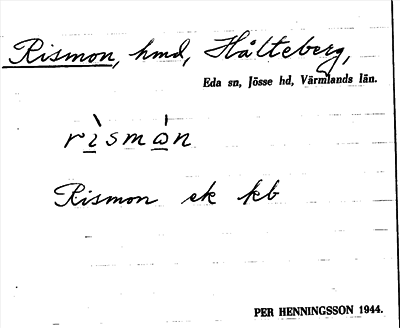 Rismon, hmd, Hålteberg,
Eda sn, Jösse hd, Värmlands län.
rìsmàn
Rismon ek kb
PER HENNINGSSON 1944.